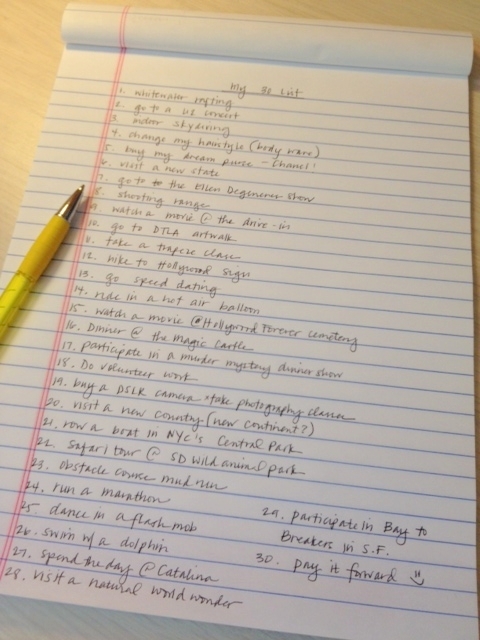 my 30 list
1. whitewater rafting
2. go to a U2 concert
3. indoor skydiving
4. change my hairstyle (body wave)
5. buy my dream purse - Chanel!
6. visit a new state
7. go to to the Ellen Degeneres show
8. shooting range
9. watch a movie @ the drive-in
10. go to DTLA artwalk
11. take a trapeze class
12. hike to Hollywood sign
13. go speed dating
14. ride in a hot air balloon
15. watch a movie @ Hollywood Forever cemetery
16. Dinner @ the magic castle
17. participate in a murder mystery dinner show
18. Do volunteer work
19. buy a DSLR camera + take photography classes
20. visit a new country (new continent?)
21. row a boat in NYC's Central Park
22. safari tour @ SD wild animal park
23. obstacle course mud run
24. run a marathon
25. dance in a flash mob
26. swim w/ a dolphin
27. spend the day @ Catalina
28. visit a natural world wonder
29. participate in Bay to
Breakers in S.F.
30. pay it forward